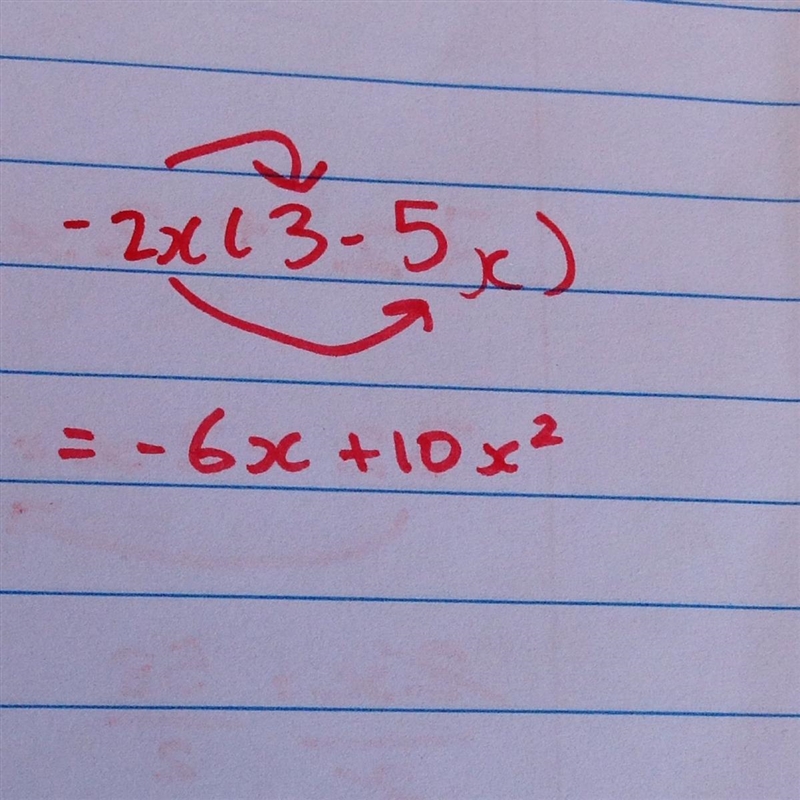 -2x(3-5x)
= -6x +10x²